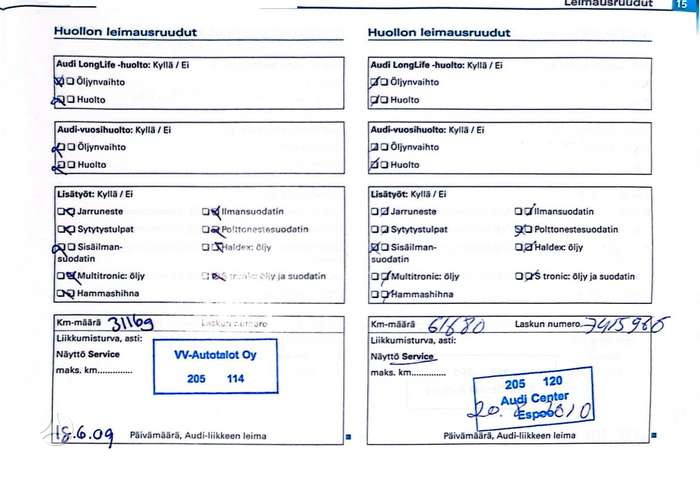 Leimausruudut 15
Huollon leimausruudut
Audi LongLife -huolto: Kyllä / Ei
Öljynvaihto
Huolto
Audi-vuosihuolto: Kyllä / Ei
Öljynvaihto
Huolto
Lisätyöt: Kyllä / Ei
Jarruneste Ilmansuodatin
Sytytystulpat Polttonestesuodatin
Sisäilman- Haldex: öljy
suodatin
Multitronic: öljy S tronic: öljy ja suodatin
Hammashihna
Km-määrä 31169 Laskun numero
Liikkumisturva, asti:
Näyttö Service
maks. km..............
VV-Autotalot Oy
205 114
18.6.09 Päivämäärä, Audi-liikkeen leima
Huollon leimausruudut
Audi LongLife -huolto: Kyllä / Ei
Öljynvaihto
Huolto
Audi-vuosihuolto: Kyllä / Ei
Öljynvaihto
Huolto
Lisätyöt: Kyllä / Ei
Jarruneste Ilmansuodatin
Sytytystulpat Polttonestesuodatin
Sisäilman- Haldex: öljy
suodatin
Multitronic: öljy S tronic: öljy ja suodatin
Hammashihna
Km-määrä 61680 Laskun numero.
Liikkumisturva, asti:
Näyttö Service
maks. km..............
205 120
Audi Center
Espoo
Päivämäärä, Audi-liikkeen leima